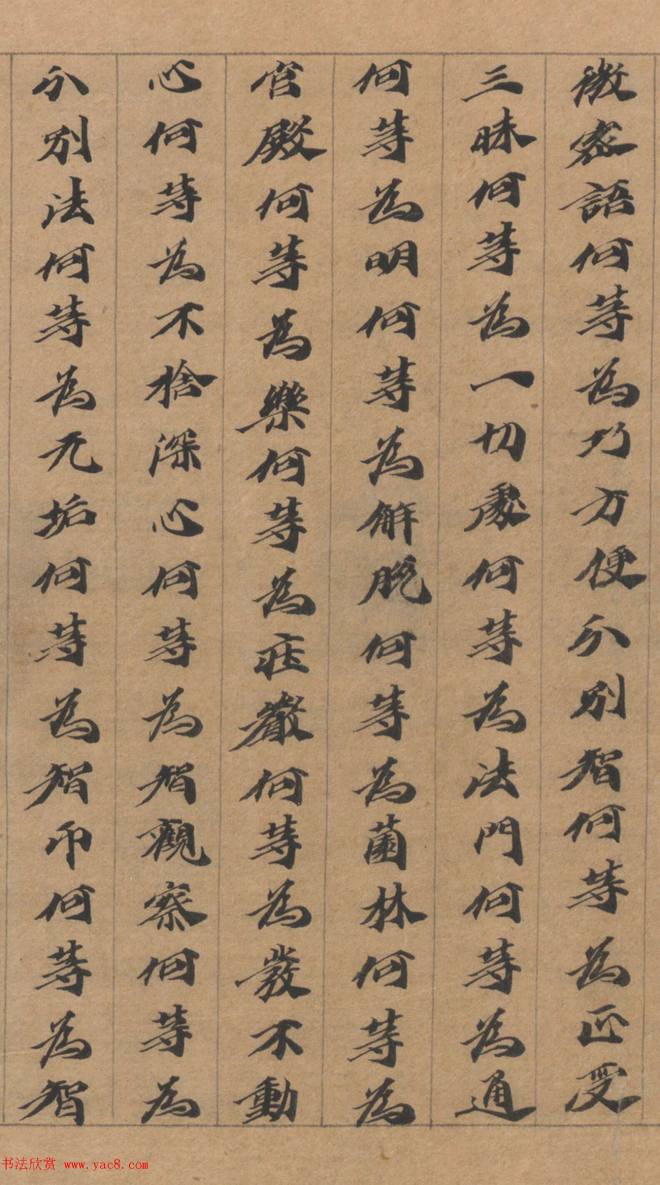 微密語何等為巧方便分別智何等為正受
三昧何等為一切處何等為法門何等為通
何等為明何等為解脫何等為薗林何等為
官殿何等為樂何等為莊嚴何等為發不動
心何等為不捨深心何等為智觀察何等為
分別法何等為无垢何等為智印何等為智
书法欣赏 www.yac8.com